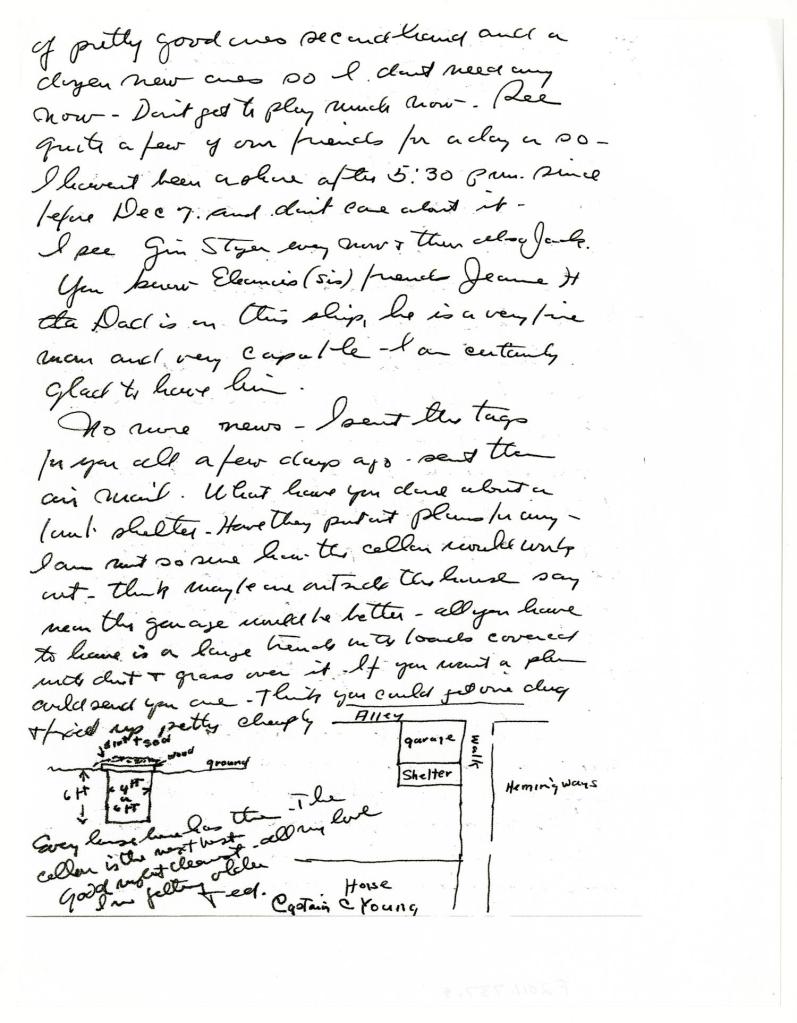 of pretty good ones second hand and a
dozen new ones so I dont need any
now - Don't get to play much now - See
quite a few of our friends for a day or so -
I havent been ashore after 5:30 p.m. since
before Dec 7. and don't care about it -
I see Gin Styer every now & then also Jack.
You know Eleanors (sis) friend Jeanne H
Dad is on this ship, he is a very fine
man and very capable - I am certainly
glad to have him.
No more news - I sent the tags
for you all a few days ago - sent them
air mail. What have you done about a
bomb shelter - Have they put out plans for any -
I am not so sure how the cellar would work
out - think maybe one outside the house say
near the garage would be better - all you have
to have is a large trench with boards covered
with dirt & grass over it - If you want a plan
could send you one - Think you could get one dug
& fixed up pretty cheaply
Alley
dirt + sod
wood
ground
6 FT
4 FT
6 FT
garage
Shelter
walk
Hemingways
Every house here has them - The
cellar is the next best
Good night dearest - all my love
I'm getting older
Ted.
House
Captain C Young